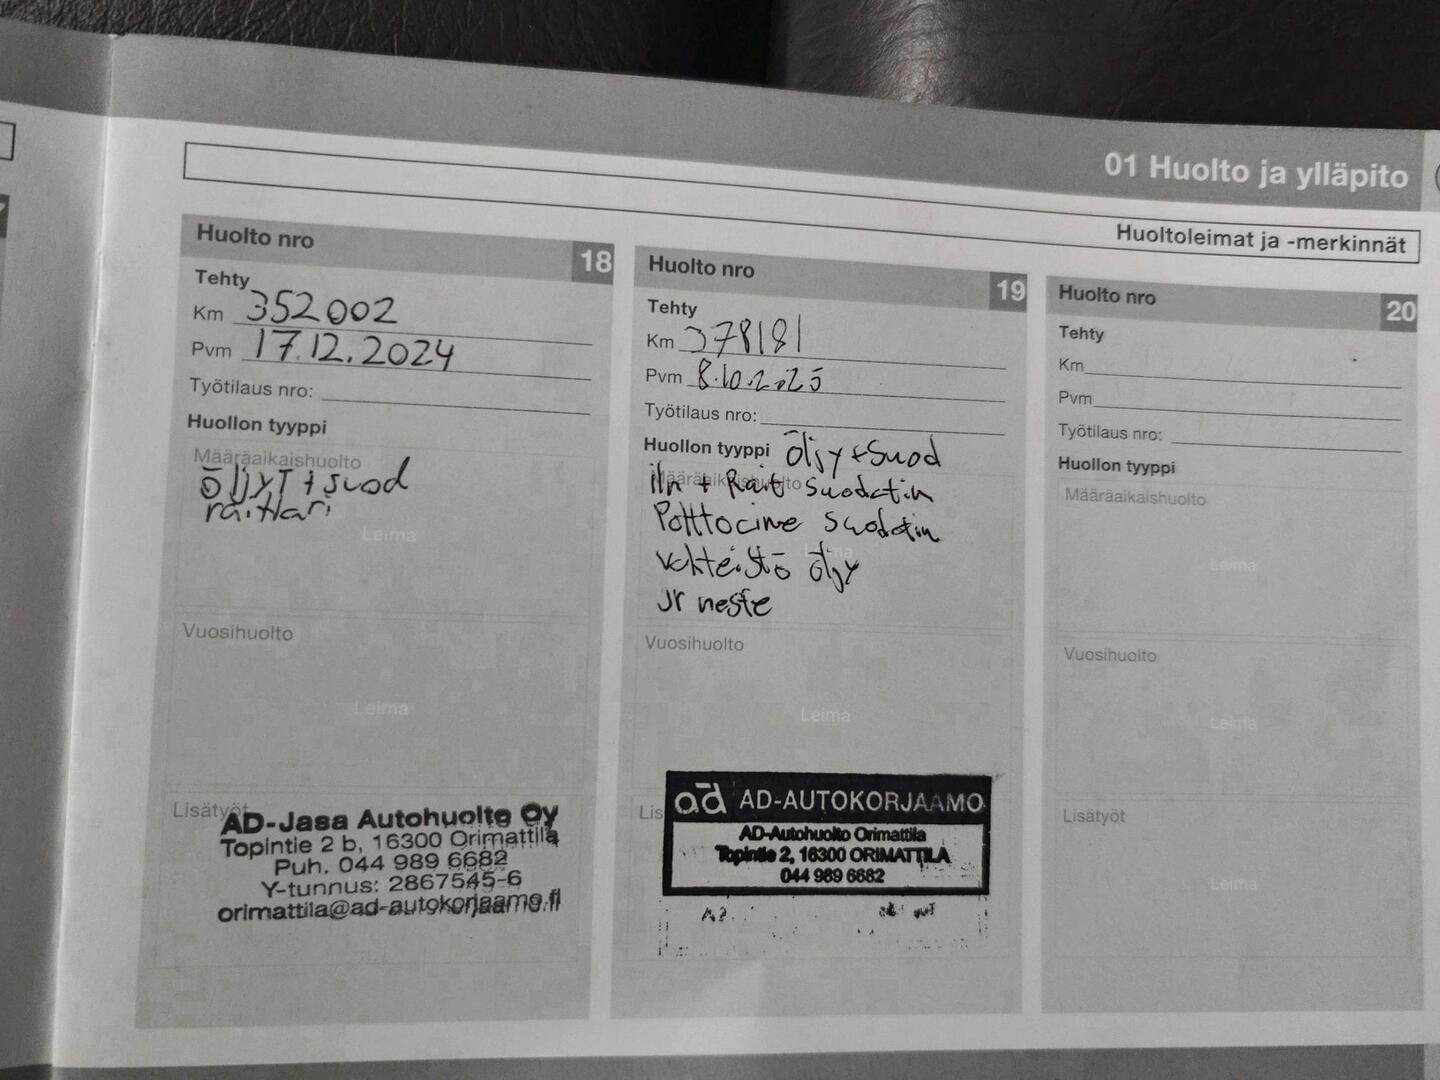 01 Huolto ja ylläpito
Huoltoleimat ja -merkinnät
Huolto nro 18
Tehty
Km 352002
Pvm 17.12.2024
Työtilaus nro:
Huollon tyyppi
Määräaikaishuolto
öljyt + suod
raitlari
Leima
Vuosihuolto
Leima
Lisätyöt
AD-Jasa Autohuolto Oy
Topintie 2 b, 16300 Orimattila
Puh. 044 989 6682
Y-tunnus: 2867545-6
orimattila@ad-autokorjaamo.fi
Huolto nro 19
Tehty
Km 378181
Pvm 8.10.2025
Työtilaus nro:
Huollon tyyppi öljy + Suod
Määräaikaishuolto
iln + Rait suodatin
Polttoaine suodatin
Vaihteistö öljy
Leima
Jr neste
Vuosihuolto
Leima
Lis
ad AD-AUTOKORJAAMO
AD-Autohuolto Orimattila
Topintie 2, 16300 ORIMATTILA
044 989 6682
Huolto nro 20
Tehty
Km
Pvm
Työtilaus nro:
Huollon tyyppi
Määräaikaishuolto
Leima
Vuosihuolto
Leima
Lisätyöt
Leima